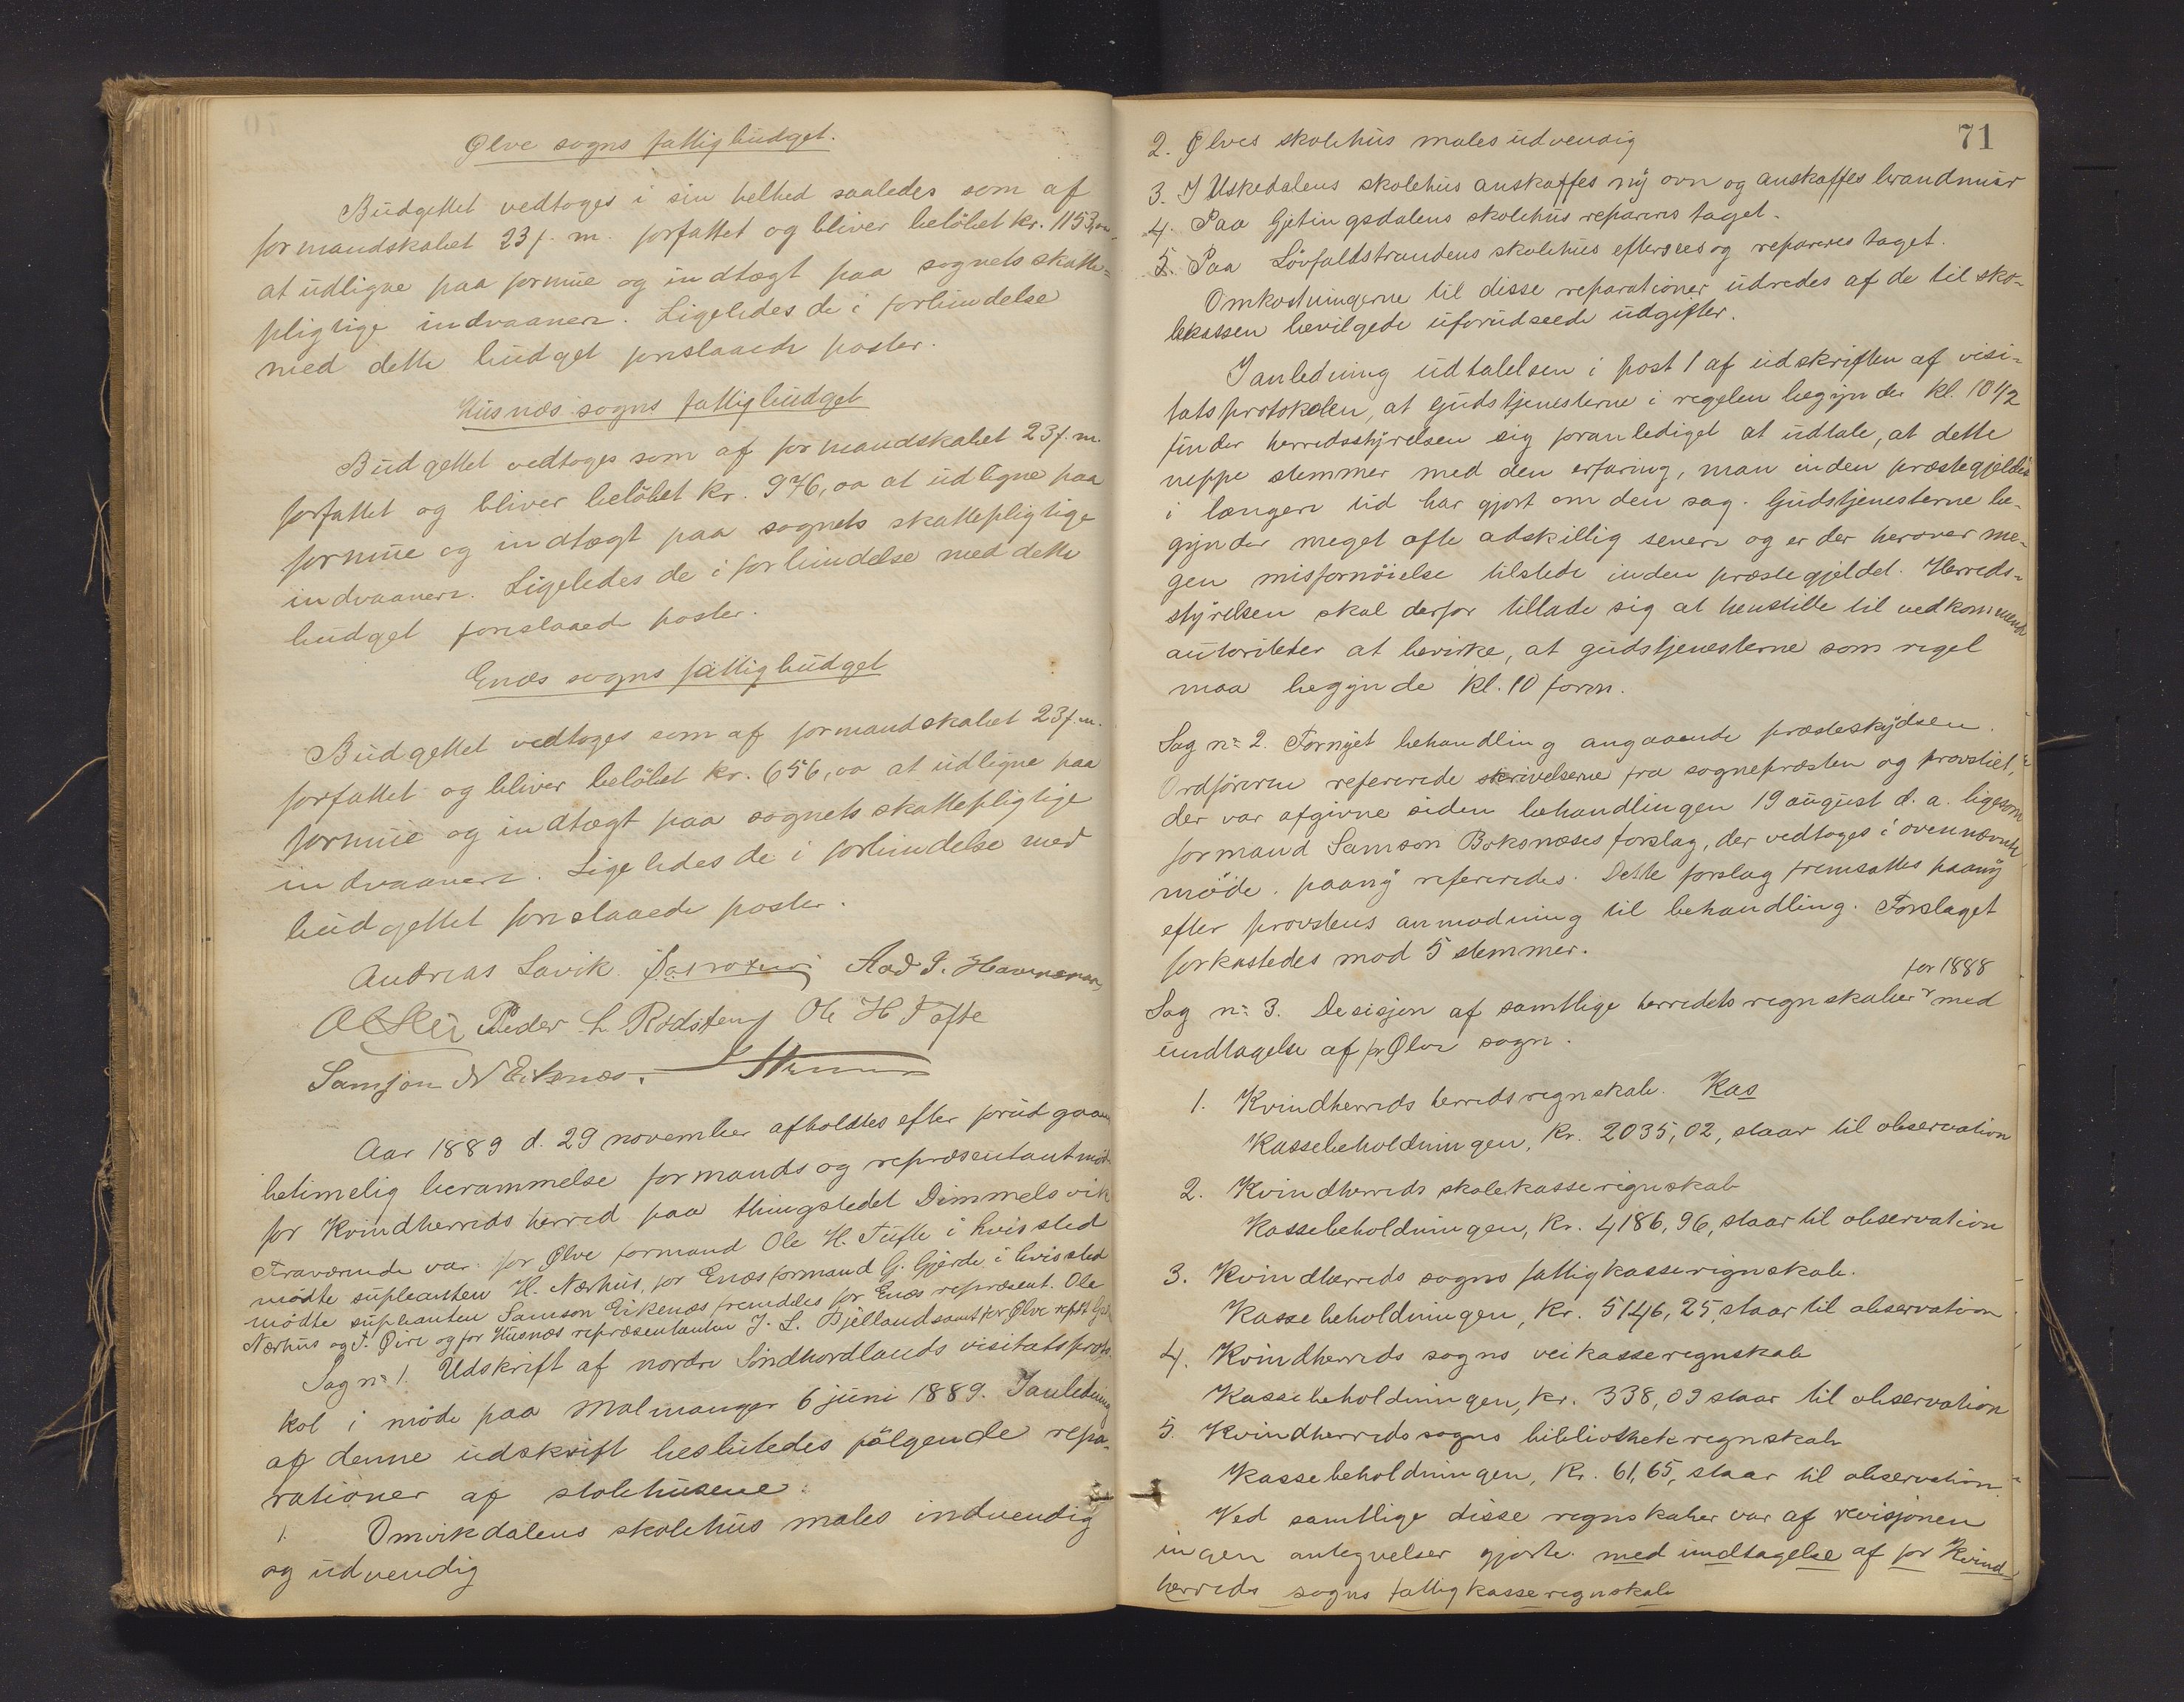 Ølve sogns fattigbudget.
Budgettet vedtoges i sin helhed saaledes som af
formandskabet 23 f. m. forfattet og bliver beløbet kr. 1153,00
at udligne paa formue og indtægt paa sognets skatte-
pligtige indvaanere. Ligeledes de i forbindelse
med dette budget foreslaaede poster.
Husnæs sogns fattigbudget
Budgettet vedtoges som af formandskabet 23 f. m.
forfattet og bliver beløbet kr. 976,00 at udligne paa
formue og indtægt paa sognets skattepligtige
indvaanere. Ligeledes de i forbindelse med dette
budget foreslaaede poster.
Enæs sogns fattigbudget
Budgettet vedtoges som af formandskabet 23 f. m.
forfattet og bliver beløbet kr. 656,00 at udligne paa
formue og indtægt paa sognets skattepligtige
indvaanere. Ligeledes de i forbindelse med
budgettet foreslaaede poster.
Andreas Savik. Aad
Peder L Rødsteny Ole H Tofte
Samson N Eikenæs.
Aar 1889 d. 29 november afholdtes efter forudgaaen
betimelig berammelse formands og repræsentantmøde
for Kvindherreds herred paa thingstedet Dimmelsvik
Fraværende var for Ølve formand Ole H. Tufte i hvis sted
mødte supleanten H. Nærhus, for Enæs formand G. Gjerde i hvis sted
mødte supleanten Samson Eikenæs fremdeles for Enæs repræsent. Ole
Nærhus og T. Øire og for Husnæs repræsentanten J. L. Bjelland samt for Ølve repst.
Sag nr 1. Udskrift af nordre Søndhordlands visitatsproto-
kol i møde paa Malmanger 6 juni 1889. I anledning
af denne udskrift besluttedes følgende repa-
rationer af skolehusene:
1. Omvikdalens skolehus males indvendig
og udvendig
71
2. Ølves skolehus males udvendig
3. I Uskedalens skolehus anskaffes ny ovn og anskaffes brandmur
4. Paa Gjetingsdalens skolehus repareres taget.
5. Paa Løvfaldstrandens skolehus eftersees og repareres taget.
Omkostningerne til disse reparationer udredes af de til sko-
lekassen bevilgede uforudseede udgifter.
I anledning udtalelsen i post 1 af udskriften af visi-
tatsprotokolen, at gudstjenesterne i regelen begynder kl. 10 1/2
finder herredsstyrelsen sig foranlediget at udtale, at dette
neppe stemmer med den erfaring, man inden præstegjeldet
i længere tid har gjort om den sag. Gudstjenesterne be-
gynder meget ofte adskillig senere og er der herover me-
gen misfornøielse tilstede inden præstegjeldet. Herreds-
styrelsen skal derfor tillade sig at henstille til vedkommende
autoriteter at bevirke, at gudstjenesterne som regel
maa begynde kl. 10 form.
Sag nr 2. Fornyet behandling angaaende præsteskydsen.
Ordføreren refererede skrivelserne fra sognepræsten og provstiet,
der var afgivne siden behandlingen 19 august d. a. ligesom
formand Samson Boksnæses forslag, der vedtoges i ovennævnte
møde. paany refereredes. Dette forslag fremsattes paany
efter provstens anmodning til behandling. Forslaget
forkastedes mod 5 stemmer.
for 1888
Sag nr 3. Desisjon af samtlige herredets regnskaber med
undtagelse af for Ølve sogn.
1. Kvindherreds herredsregnskab. Kas
Kassebeholdningen, kr. 2035,02, staar til observation
2. Kvindherreds skolekasseregnskab
Kassebeholdningen, kr. 4186,96, staar til observation
3. Kvindherreds sogns fattigkasseregnskab.
Kassebeholdningen, kr. 5146,25, staar til observation
4. Kvindherreds sogns veikasseregnskab
Kassebeholdningen, kr. 338,09 staar til observation
5. Kvindherreds sogns bibliothekregnskab
Kassebeholdningen, kr. 61,65, staar til observation.
Ved samtlige disse regnskaber var af revisjonen
ingen antegnelser gjorte med undtagelse af for Kvind-
herreds sogns fattigkasseregnskab